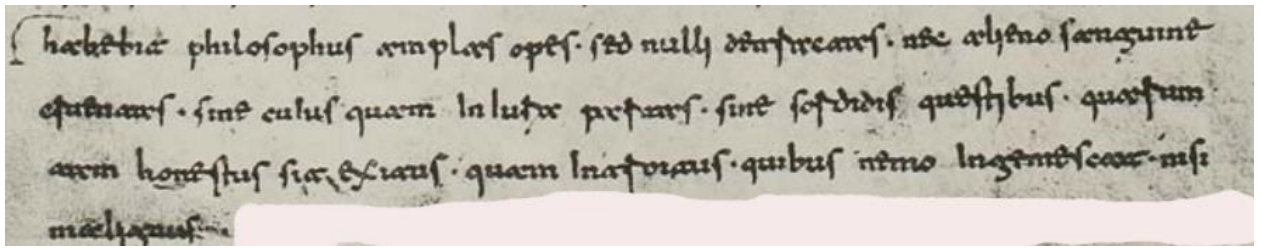 habebit philosophus amplas opes · sed nulli detractas · nec alieno sanguine
cruentas · sine cuius quam Iniuria partas · sine sordidis questibus · quarum
tam honestus sit exitus · quam Introitus · quibus nemo Ingemescat · nisi
malignus ·